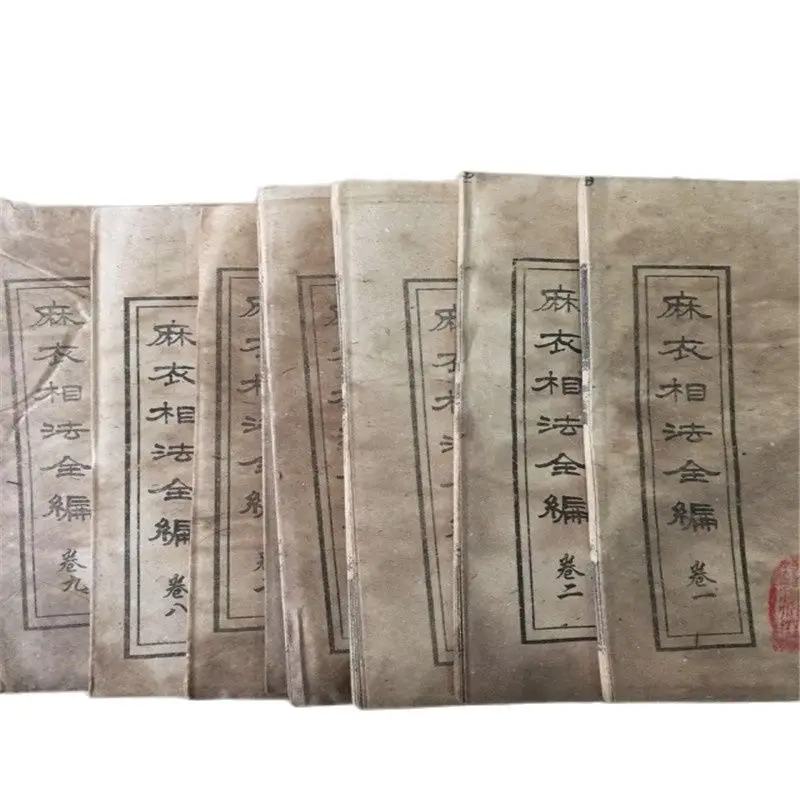 麻衣相法全編 卷一
麻衣相法全編 卷二
麻衣相法
麻衣相法全
麻衣相法全編 卷八
麻衣相法全編 卷九